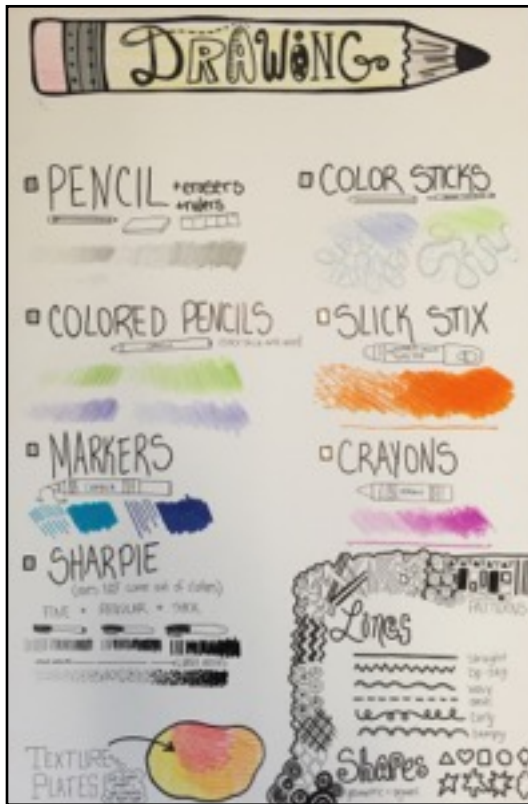 DRAWING
PENCIL
+erasers
+rulers
COLORED PENCILS
MARKERS
SHARPIE
(does NOT come out of clothes)
FINE + REGULAR + THICK
TEXTURE
PLATES
COLOR STICKS
SLICK STIX
CRAYONS
PATTERNS
Lines
straight
zig-zag
wavy
curly
bumpy
Shapes